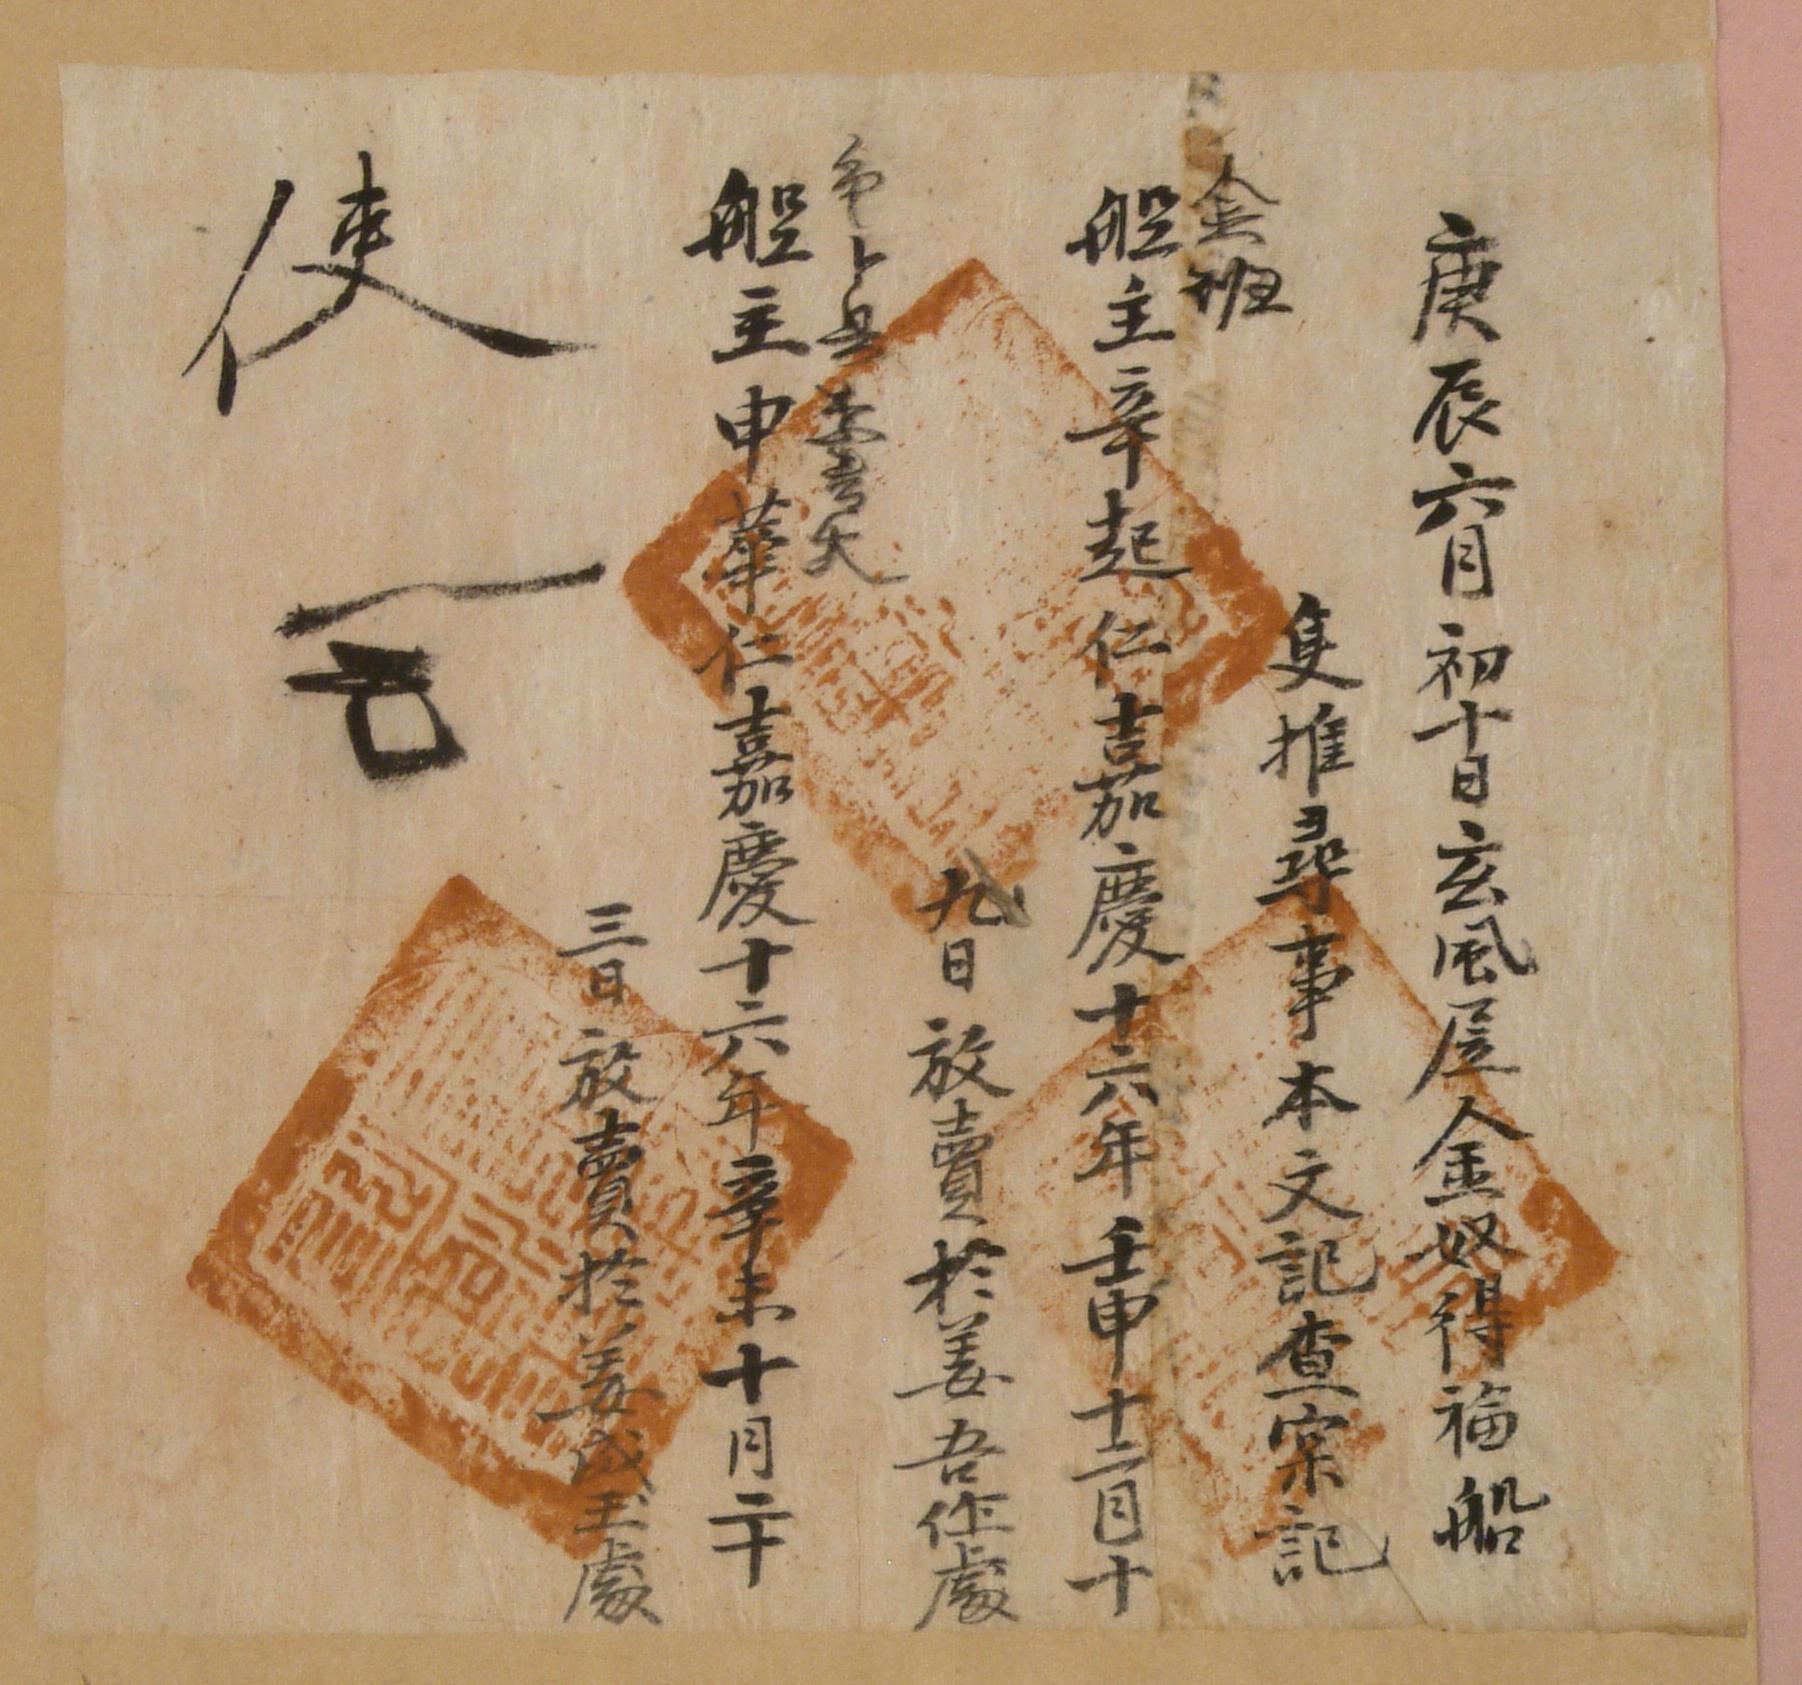 庚辰六月初十日玄風居金奴得福船
隻推尋事本文記查案記
金班
船主辛起仁嘉慶十六年壬申十二月十
九日放賣於姜吾作處
船主申華仁嘉慶十六年辛未十月二十
三日放賣於姜成玉處
使